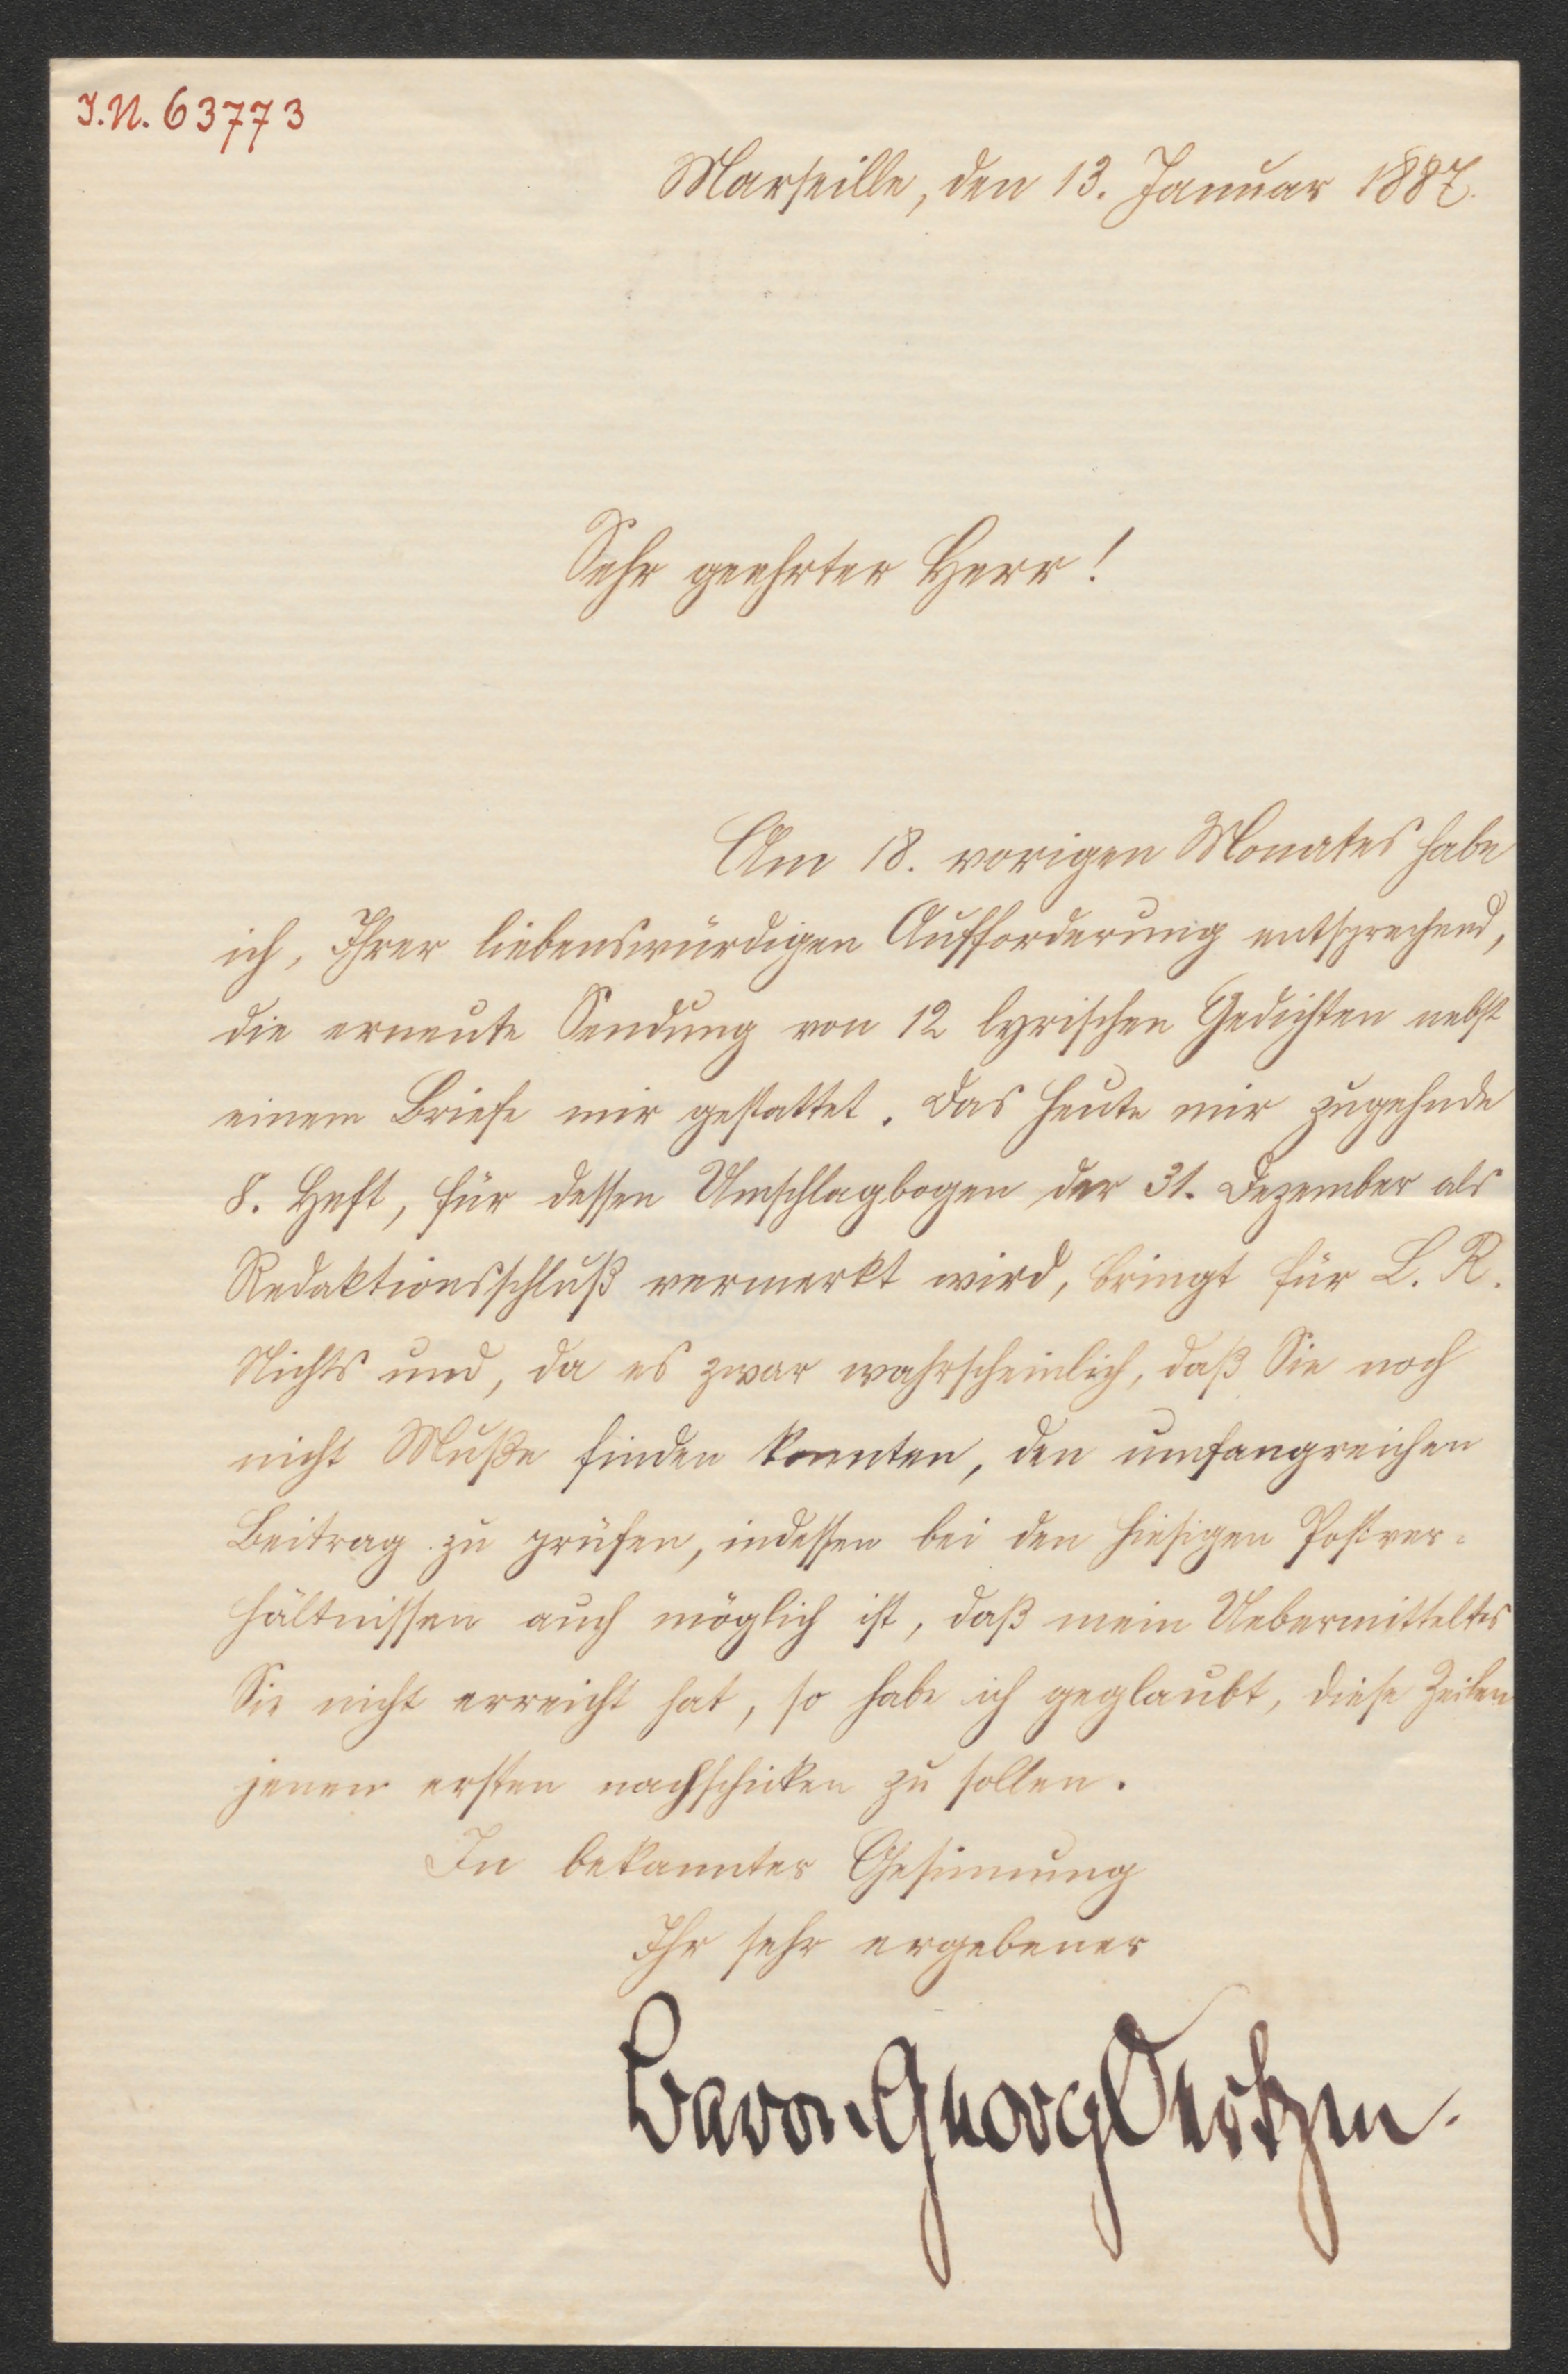 I.N. 63773
Marseille, den 13. Januar 1887.
Sehr geehrter Herr!
Am 18. vorigen Monates habe
ich, Ihrer liebenswürdigen Aufforderung entsprechend,
die erneute Sendung von 12 lyrischen Gedichten nebst
einem Briefe mir gestattet. Das heute mir zugehnde
8. Heft, für dessen Umschlagbogen der 31. Dezember als
Redaktionsschluß vermerkt wird, bringt für L. R.
Nichts und, da es zwar wahrscheinlich, daß Sie noch
nicht Muße finden konnten, den umfangreichen
Beitrag zu prüfen, indessen bei den hiesigen Postver-
hältnissen auch möglich ist, daß mein Uebermitteltes
Sie nicht erreicht hat, so habe ich geglaubt, diese Zeilen
jenen ersten nachschicken zu sollen.
In bekannter Gesinnung
Ihr sehr ergebener
Baron Georg Oertzen.